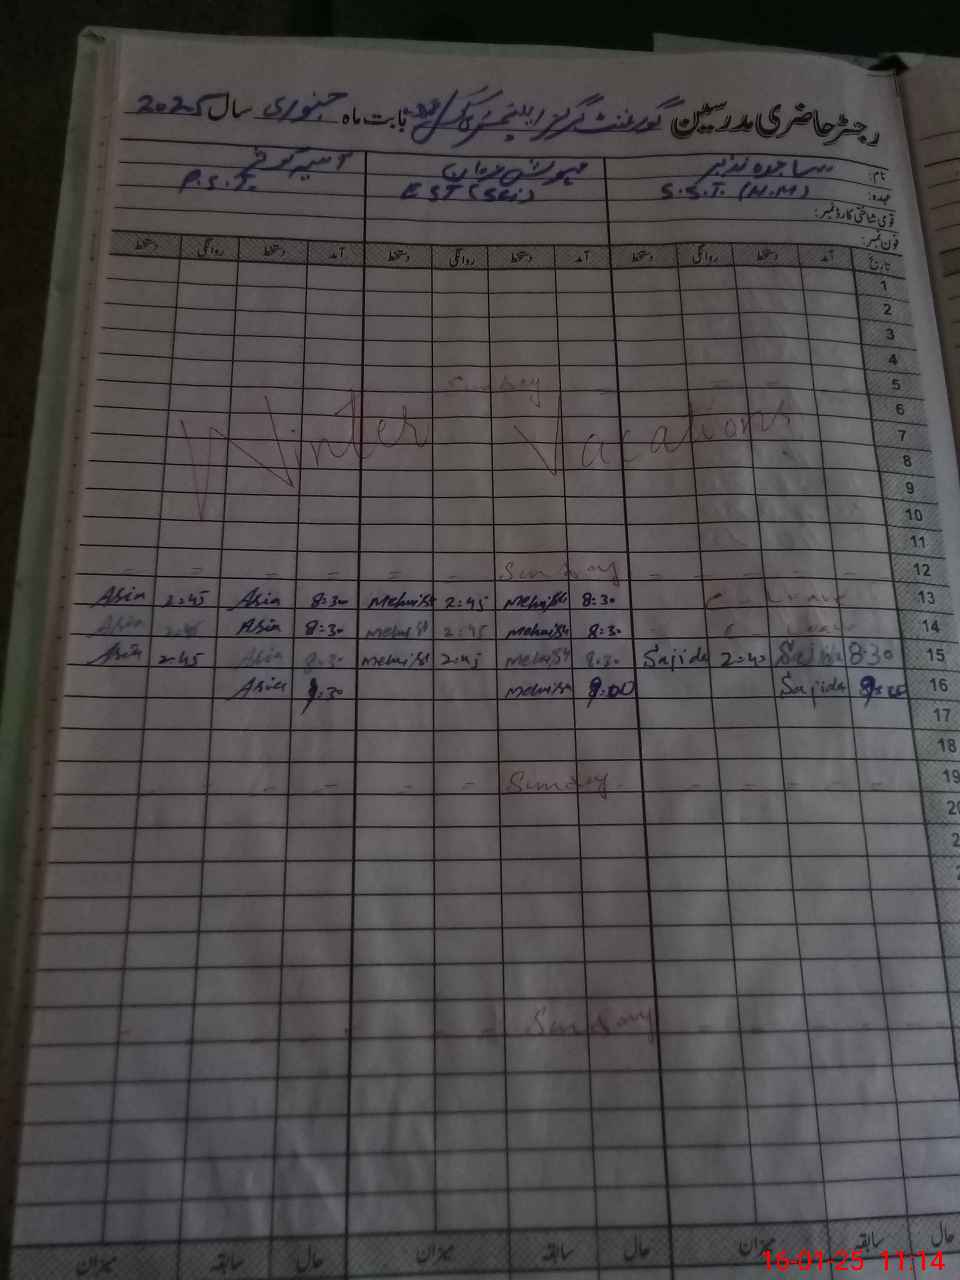 رجسٹر حاضری مدرسین گورنمنٹ گرلز ایلیمنٹری بابت ماہ جنوری سال 2025
نام: ساجدہ نذیر مہوش آسیہ
عہدہ: S.S.T. (H.M) EST (Sci) P.S.T.
قومی شناختی کارڈ نمبر:
فون نمبر:
تاریخ آمد دستخط روانگی دستخط آمد دستخط روانگی دستخط آمد دستخط روانگی دستخط
1
2
3
4
Sunday 5
6
Winter Vacations 7
8
9
10
11
– = – – = – Sunday – – – – – 12
Asia 2:45 Asia 8:30 Mehwish 2:45 Mehwish 8:30 C – Leave 13
Asia 2:45 Asia 8:30 Mehwish 2:45 Mehwish 8:30 – C Leave 14
Asia 2:45 Asia 8:30 Mehwish 2:45 Mehwish 8:30 Sajida 2:40 Sajida 8:30 15
Asia 9:30 Mehwish 9:00 Sajida 16
17
18
– – – – – – Sunday – – – – – 19
20
2
2
Sunday
میزان سابقہ حال میزان سابقہ حال میزان سابقہ حال
16-01-25 11:14